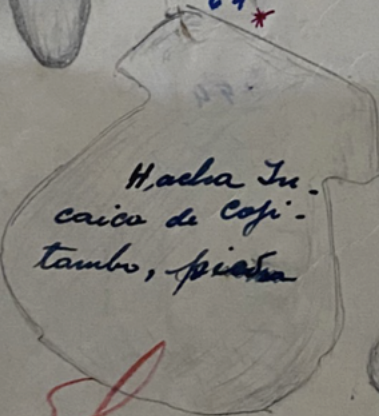 64 *
Hacha In-
caica de Coji-
tambo, piedra